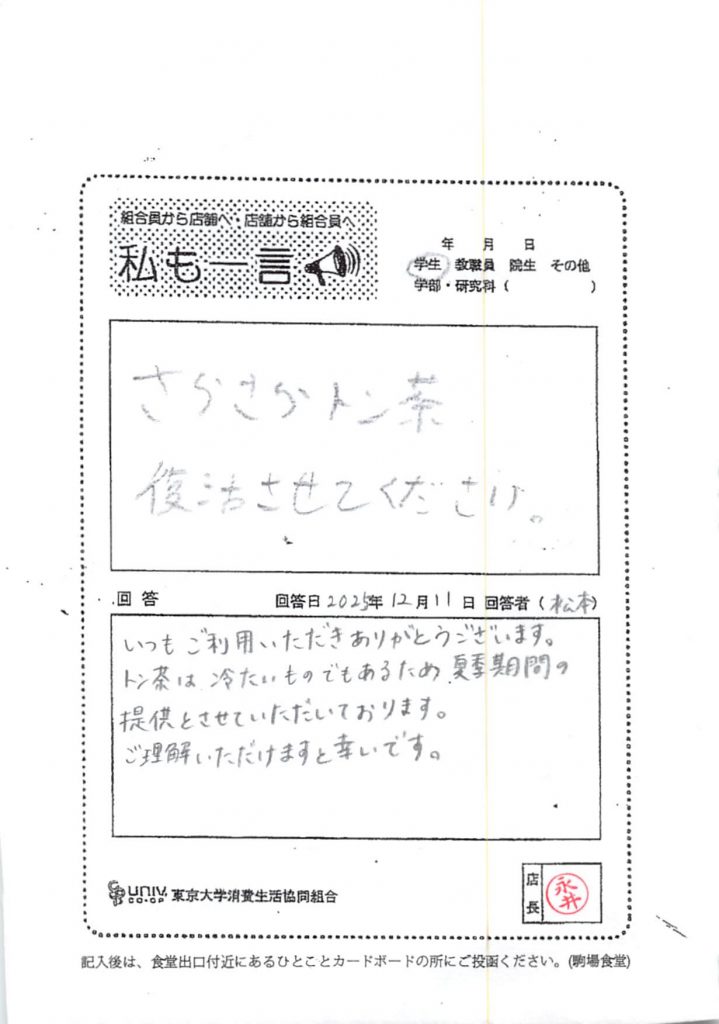 組合員から店舗へ・店舗から組合員へ
私も一言
年 月 日
学生 教職員 院生 その他
学部・研究科( )
さらさらトン茶
復活させてください。
回答 回答日2025年12月11日 回答者(松本)
いつもご利用いただきありがとうございます。
トン茶は冷たいものでもあるため夏季期間の
提供とさせていただいております。
ご理解いただけますと幸いです。
UNIV. CO-OP 東京大学消費生活協同組合
店長 永井
記入後は、食堂出口付近にあるひとことカードボードの所にご投函ください。(駒場食堂)